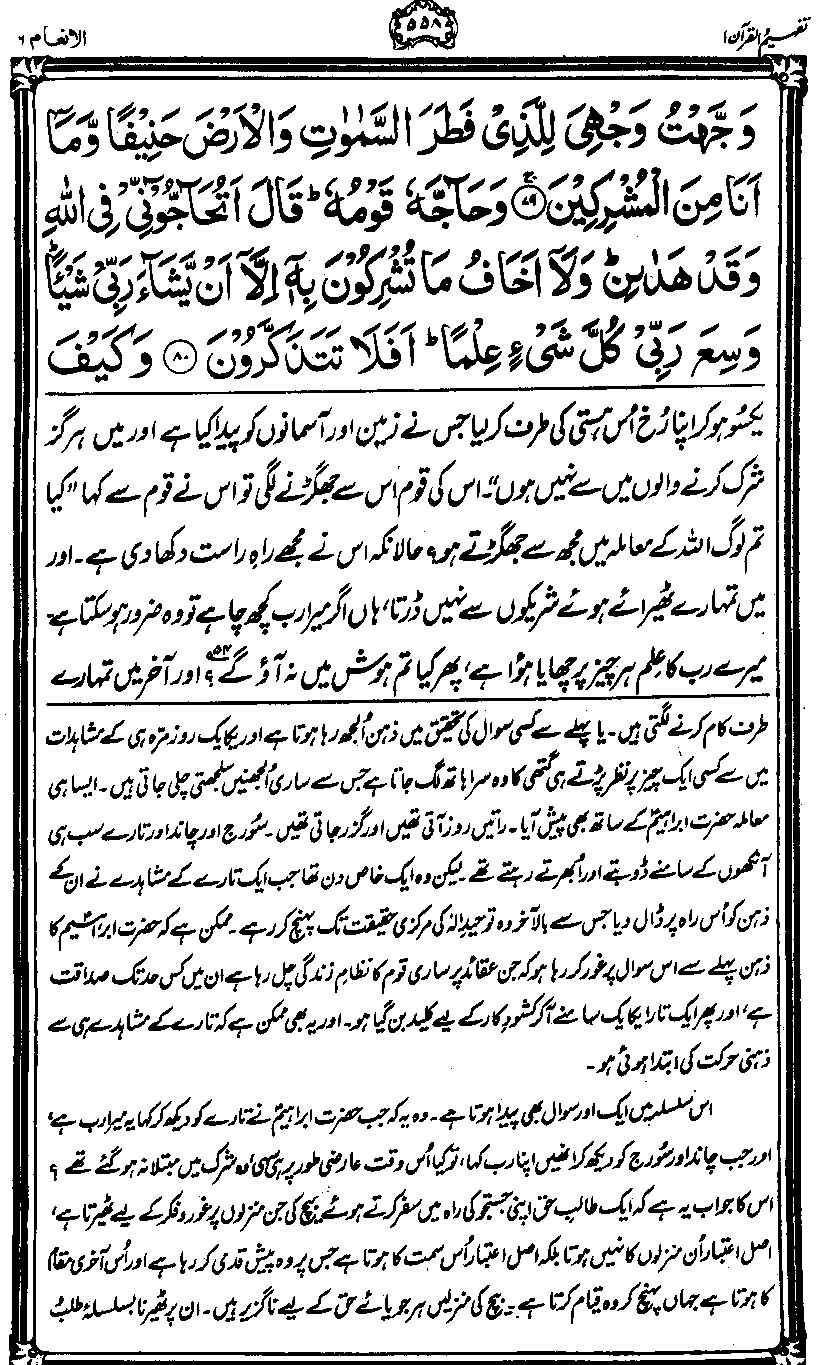 تفہیم القرآن ۱
۵۵۸
الانعام ۶
وَجَّهْتُ وَجْهِيَ لِلَّذِيْ فَطَرَ السَّمٰوٰتِ وَالْاَرْضَ حَنِيْفًا وَّمَآ
اَنَا مِنَ الْمُشْرِكِيْنَ ﴿۷۹﴾ وَحَآجَّهٗ قَوْمُهٗ ؕ قَالَ اَتُحَآجُّوْٓنِّيْ فِي اللّٰهِ
وَقَدْ هَدٰىنِ ؕ وَلَآ اَخَافُ مَا تُشْرِكُوْنَ بِهٖٓ اِلَّآ اَنْ يَّشَآءَ رَبِّيْ شَيْـًٔا ؕ
وَسِعَ رَبِّيْ كُلَّ شَيْءٍ عِلْمًا ؕ اَفَلَا تَتَذَكَّرُوْنَ ﴿۸۰﴾ وَكَيْفَ
یکسو ہو کر اپنا رُخ اُس ہستی کی طرف کر لیا جس نے زمین اور آسمانوں کو پیدا کیا ہے اور میں ہرگز
شرک کرنے والوں میں سے نہیں ہوں“۔ اس کی قوم اس سے جھگڑنے لگی تو اس نے قوم سے کہا ”کیا
تم لوگ اللہ کے معاملہ میں مجھ سے جھگڑتے ہو؟ حالانکہ اس نے مجھے راہِ راست دکھا دی ہے۔ اور
میں تمہارے ٹھیرائے ہوئے شریکوں سے نہیں ڈرتا، ہاں اگر میرا رب کچھ چاہے تو وہ ضرور ہو سکتا ہے۔
میرے رب کا عِلم ہر چیز پر چھایا ہوا ہے، پھر کیا تم ہوش میں نہ آؤ گے؟۵۴ اور آخر میں تمہارے
طرف کام کرنے لگتی ہیں۔ یا پہلے سے کسی سوال کی تحقیق میں ذہن اُلجھ رہا ہوتا ہے اور یکایک روزمرہ ہی کے مشاہدات
میں سے کسی ایک چیز پر نظر پڑتے ہی گتھی کا وہ سرا ہاتھ لگ جاتا ہے جس سے ساری اُلجھنیں سلجھتی چلی جاتی ہیں۔ ایسا ہی
معاملہ حضرت ابراہیمؑ کے ساتھ بھی پیش آیا۔ راتیں روز آتی تھیں اور گزر جاتی تھیں۔ سُورج اور چاند اور تارے سب ہی
آنکھوں کے سامنے ڈوبتے اور اُبھرتے رہتے تھے۔ لیکن وہ ایک خاص دن تھا جب ایک تارے کے مشاہدے نے ان کے
ذہن کو اُس راہ پر ڈال دیا جس سے بالآخر وہ توحیدِ الٰہ کی مرکزی حقیقت تک پہنچ کر رہے۔ ممکن ہے کہ حضرت ابراہیم کا
ذہن پہلے سے اس سوال پر غور کر رہا ہو کہ جن عقائد پر ساری قوم کا نظامِ زندگی چل رہا ہے ان میں کس حد تک صداقت
ہے، اور پھر ایک تارا یکایک سامنے آکر کشودِ کار کے لیے کلید بن گیا ہو۔ اور یہ بھی ممکن ہے کہ تارے کے مشاہدے ہی سے
ذہنی حرکت کی ابتدا ہوئی ہو۔
اس سلسلہ میں ایک اور سوال بھی پیدا ہوتا ہے۔ وہ یہ کہ جب حضرت ابراہیمؑ نے تارے کو دیکھ کر کہا یہ میرا رب ہے،
اور جب چاند اور سُورج کو دیکھ کر انہیں اپنا رب کہا، تو کیا اُس وقت عارضی طور پر ہی سہی، وہ شرک میں مبتلا نہ ہو گئے تھے؟
اس کا جواب یہ ہے کہ ایک طالبِ حق اپنی جستجو کی راہ میں سفر کرتے ہوئے بیچ کی جن منزلوں پر غور و فکر کے لیے ٹھیرتا ہے،
اصل اعتبار اُن منزلوں کا نہیں ہوتا بلکہ اصل اعتبار اُس سمت کا ہوتا ہے جس پر وہ پیش قدمی کر رہا ہے اور اُس آخری مقام
کا ہوتا ہے جہاں پہنچ کر وہ قیام کرتا ہے۔ بیچ کی منزلیں ہر جویائے حق کے لیے ناگزیر ہیں۔ ان پر ٹھیرنا بسلسلۂ طلب